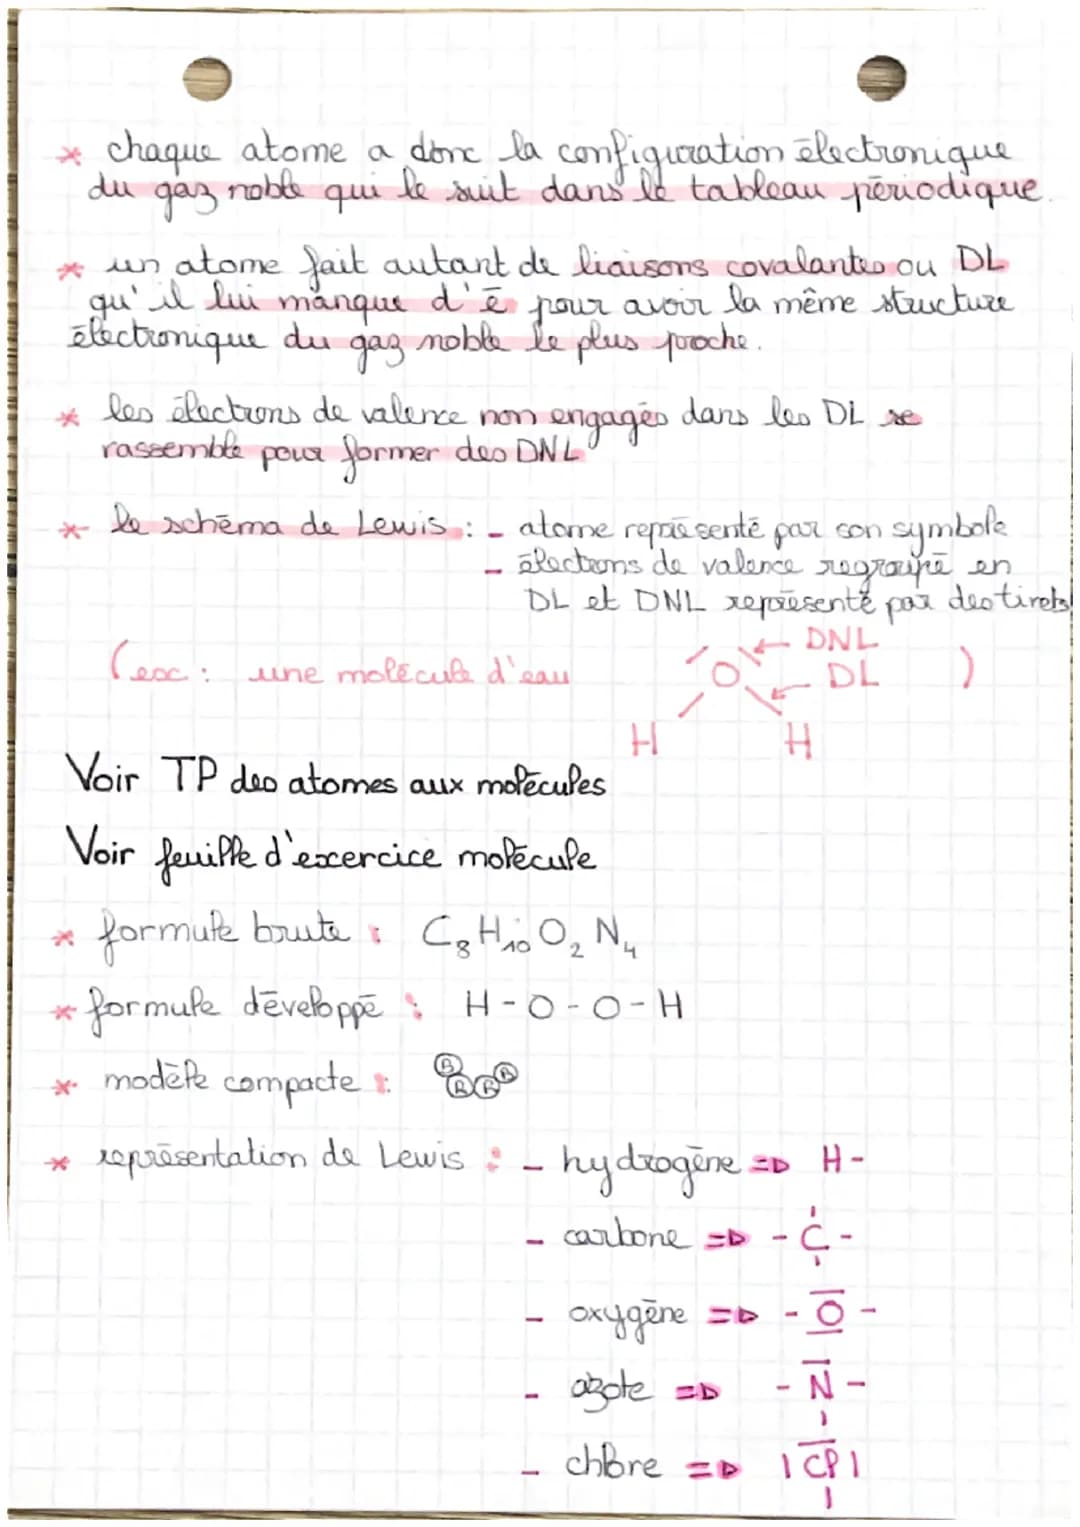 * chaque atome a donc la configuration électronique
du gaz noble qui le suit dans le tableau périodique.
* un atome fait autant de liaisons covalantes ou DL
qu'il lui manque d'ē pour avoir la même structure
électronique du gaz noble le plus proche.
* les électrons de valence non engagés dans les DL se
rassemble pour former des DNL
* le schéma de Lewis : - atome représenté par son symbole
- électrons de valence regroupé en
DL et DNL représenté par des tirets
← DNL
(ex : une molécule d'eau O ← DL )
H H
Voir TP des atomes aux molécules
Voir feuille d'excercice molécule
* formule brute : C₈H₁₀O₂N₄
* formule développé : H-O-O-H
* modèle compacte : B B B B
* représentation de Lewis : - hydrogène => H-
- carbone => -C-
- oxygène => -O-
- azote => -N-
- chlore => |Cl|